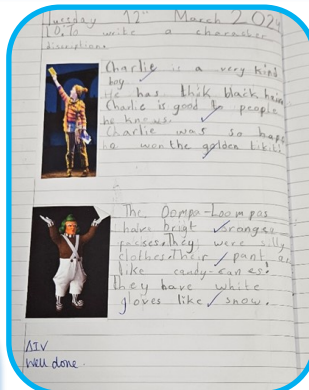 Tuesday 12th March 2024
LO: To write a character
discriptions.
Charlie is a very kind
boy.
He has thik black hair
Charlie is good to people
he knows.
Charlie was so happ
he won the golden tikit!
The Oompa-Loompas
have brigt orange
faces. They were silly
clothes. Their pant as
like candy-canes.
they have white
gloves like snow.
AIV
Well done.